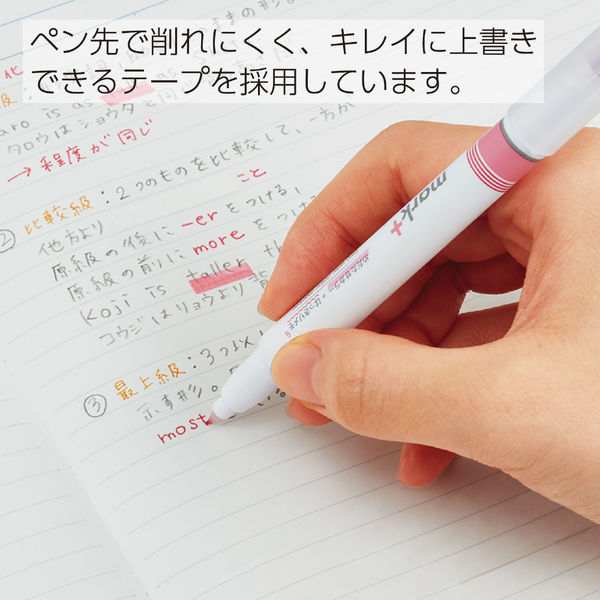 ペン先で削れにくく、キレイに上書き
できるテープを採用しています。
級
aro is as
タロウはショウタと同
→程度が同じ
②比較級:2つのものを比較して、一方が
他方より こと
原級の後に -er をつける!
原級の前に more をつける
Koji is taller th
コウジはリョウより背
③最上級:3つ以
示す形。
most
mark+